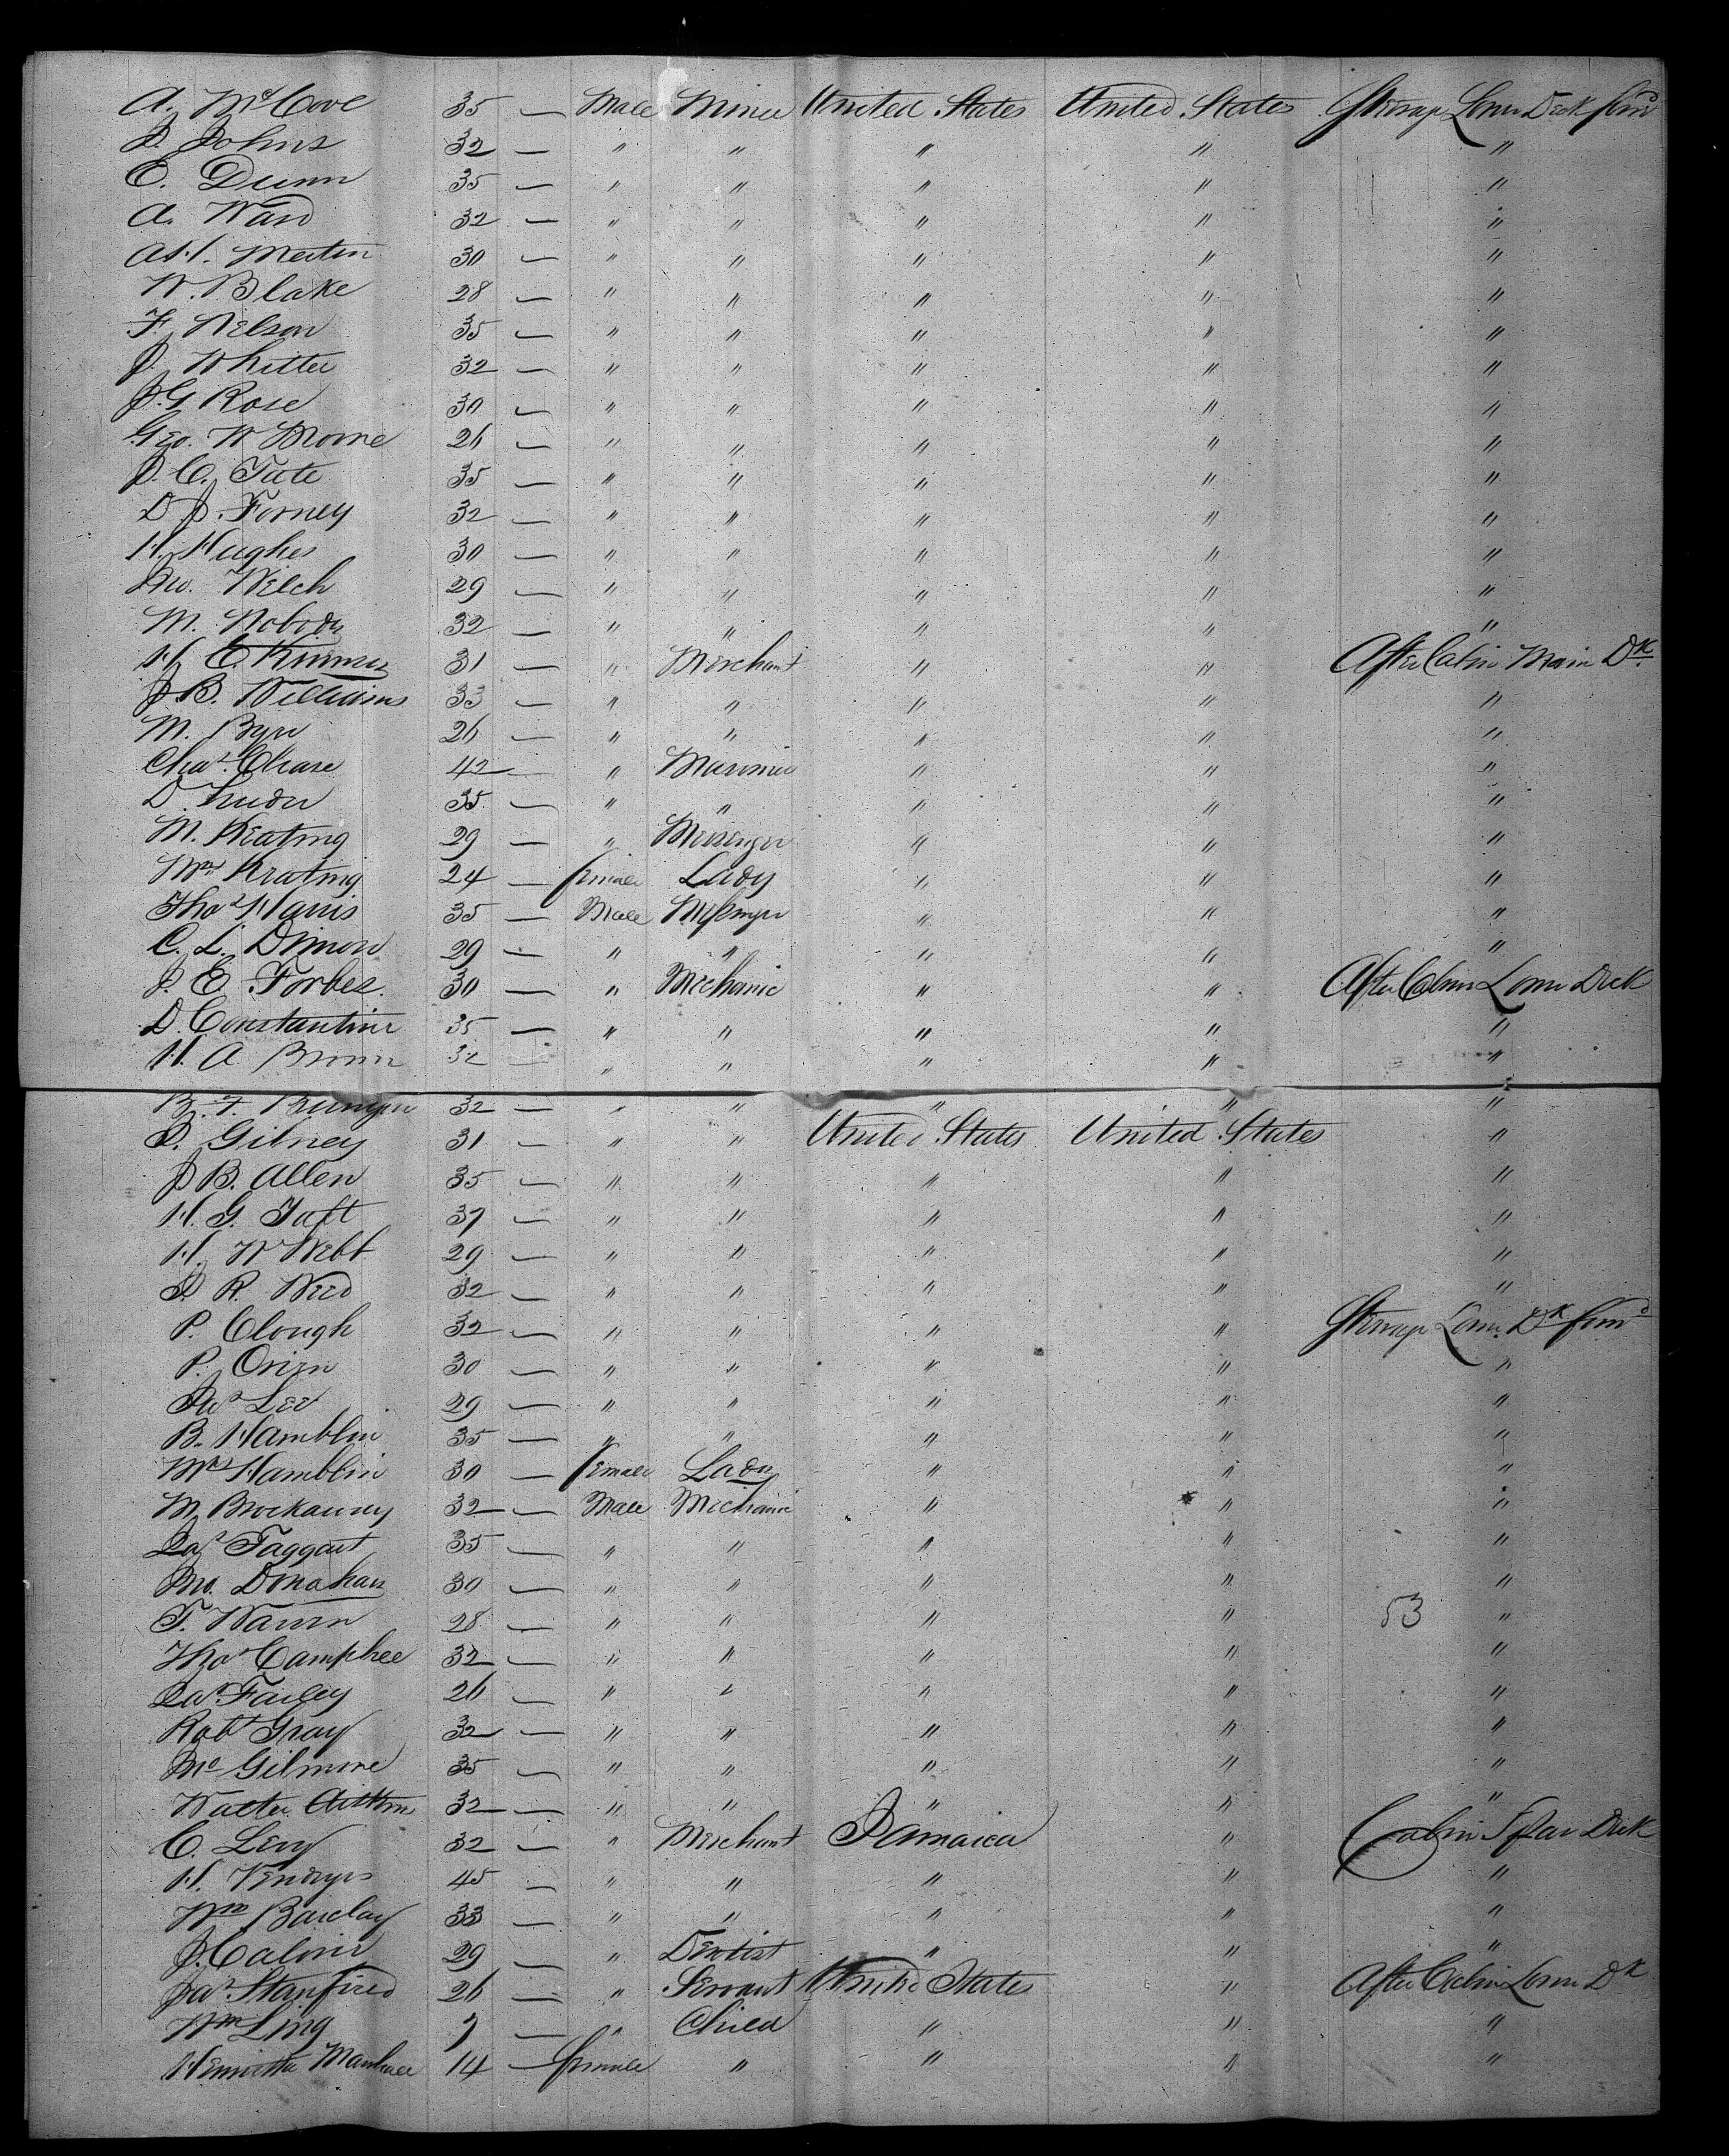 A. McCove 35 — Male Miner United States United States Steerage Lower Deck forwd
J. Johns 32 — " " " " "
E. Dunn 35 — " " " " "
A. Ward 32 — " " " " "
A.H. Martin 30 — " " " " "
W. Blake 28 — " " " " "
F. Nelson 35 — " " " " "
J. Whitter 32 — " " " " "
J.G Rose 30 — " " " " "
Geo. W Moore 26 — " " " " "
J. C. Tate 35 — " " " " "
D J. Forney 32 — " " " " "
H. Hughes 30 — " " " " "
Jno. Welch 29 — " " " " "
M. Nobody 32 — " " " " "
H E. 31 — " Merchant " " After Cabin Main Dk
J.B. Williams 33 — " " " " "
M. 26 — " " " " "
Chas Chase 42 — " Mariner " " "
D. 35 — " " " " "
M. Keating 29 — " Messenger " " "
Mrs Keating 24 — female Lady " " "
Thos Harris 35 — Male Messenger " " "
C. L. Dimon 29 — " " " " "
J. E. Forbes. 30 — " Mechanic " " After Cabin Lower Deck
D. Constantine 35 — " " " " "
H. A. Brown 32 — " " " " "
B. F. 32 — " " " " "
J. Gilney 31 — " " United States United States "
J B. Allen 35 — " " " " "
H. G. Taft 37 — " " " " "
H. W Webb 29 — " " " " "
J. R. Weed 32 — " " " " "
P. Clough 32 — " " " " Steerage Lower Dk forwd
P. 30 — " " " " "
Jas Lee 29 — " " " " "
B. Hamblin 35 — " " " " "
Mrs Hamblin 30 — female Lady " " "
M. Brockaway 32 — Male Mechanic " " "
Jas Taggart 35 — " " " " "
Jno. Donahan 30 — " " " " "
T. Warren 28 — " " " " 53 "
Thos Camphee 32 — " " " " "
Jas Failey 26 — " " " " "
Robt Gray 32 — " " " " "
Mc Gilmore 35 — " " " " "
Walter Aitken 32 — " " " " "
C. Levy 32 — " Merchant Jamaica " Cabin Spar Deck
H. Vendryes 45 — " " " " "
Wm Barclay 33 — " " " " "
J. 29 — " Dentist " " "
Jas Stanfield 26 — " Servant United States " After Cabin Lower Dk
Wm Ling 7 — " Child " " "
Henrietta 14 — female " " " "